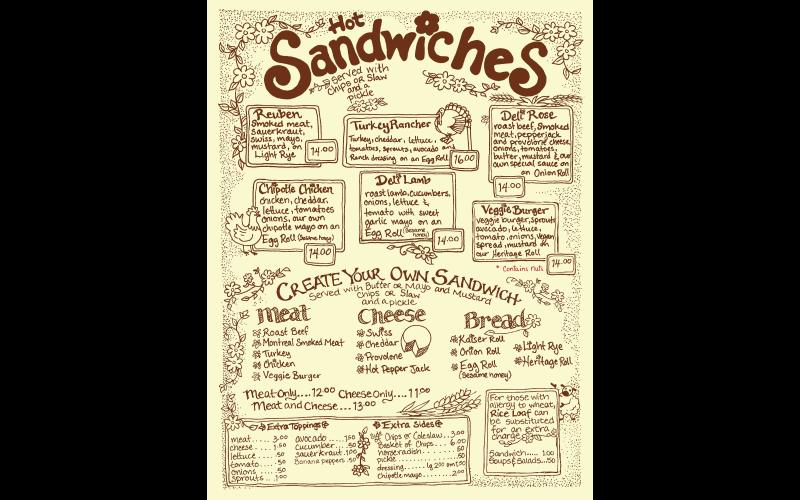 Hot
Sandwiches
served with
Chips or Slaw
and a
pickle
Reuben
Smoked meat,
sauerkraut,
swiss, mayo,
mustard, on
Light Rye
14.00
Turkey Rancher
Turkey, cheddar, lettuce,
tomatoes, sprouts, avocado and
Ranch dressing on an Egg Roll
16.00
Deli Rose
roast beef, smoked
meat, pepperjack
and provolone cheese,
onions, tomatoes,
butter, mustard & our
own special sauce on
an Onion Roll
14.00
Chipotle Chicken
chicken, cheddar,
lettuce, tomatoes
onions, our own
chipotle mayo on an
Egg Roll (Sesame honey)
14.00
Deli Lamb
roast lamb, cucumbers,
onions, lettuce &
tomato with sweet
garlic mayo on an
Egg Roll (Sesame honey)
14.00
Veggie Burger
veggie burger, sprouts
avocado, lettuce,
tomato, onions, vegan
spread, mustard on
our Heritage Roll
14.00
* Contains nuts
Create Your Own Sandwich
Served with Butter or Mayo and Mustard
Chips or Slaw
and a pickle
Meat
Roast Beef
Montreal Smoked Meat
Turkey
Chicken
Veggie Burger
Cheese
Swiss
Cheddar
Provolone
Hot Pepper Jack
Bread
Kaiser Roll
Onion Roll
Egg Roll
(Sesame honey)
Light Rye
Heritage Roll
Meat Only.... 12.00 Cheese Only.... 11.00
Meat and Cheese ... 13.00
Extra Toppings
meat..... 3.00
cheese.... 1.50
lettuce.... .50
tomato.... .50
onions.... .50
sprouts... 1.00
avocado.... 1.50
cucumber.... .50
sauerkraut. 1.00
Banana peppers .50
Extra Sides
Chips or Coleslaw.. 3.00
Basket of Chips... 6.00
horseradish..... .50
pickle..... .50
dressing.... lg 2.00 sm 1.00
Chipotle mayo...... 2.00
For those with
allergy to wheat,
Rice Loaf can
be substituted
for an extra
charge
Sandwich..... 1.00
Soups & Salads.... .50